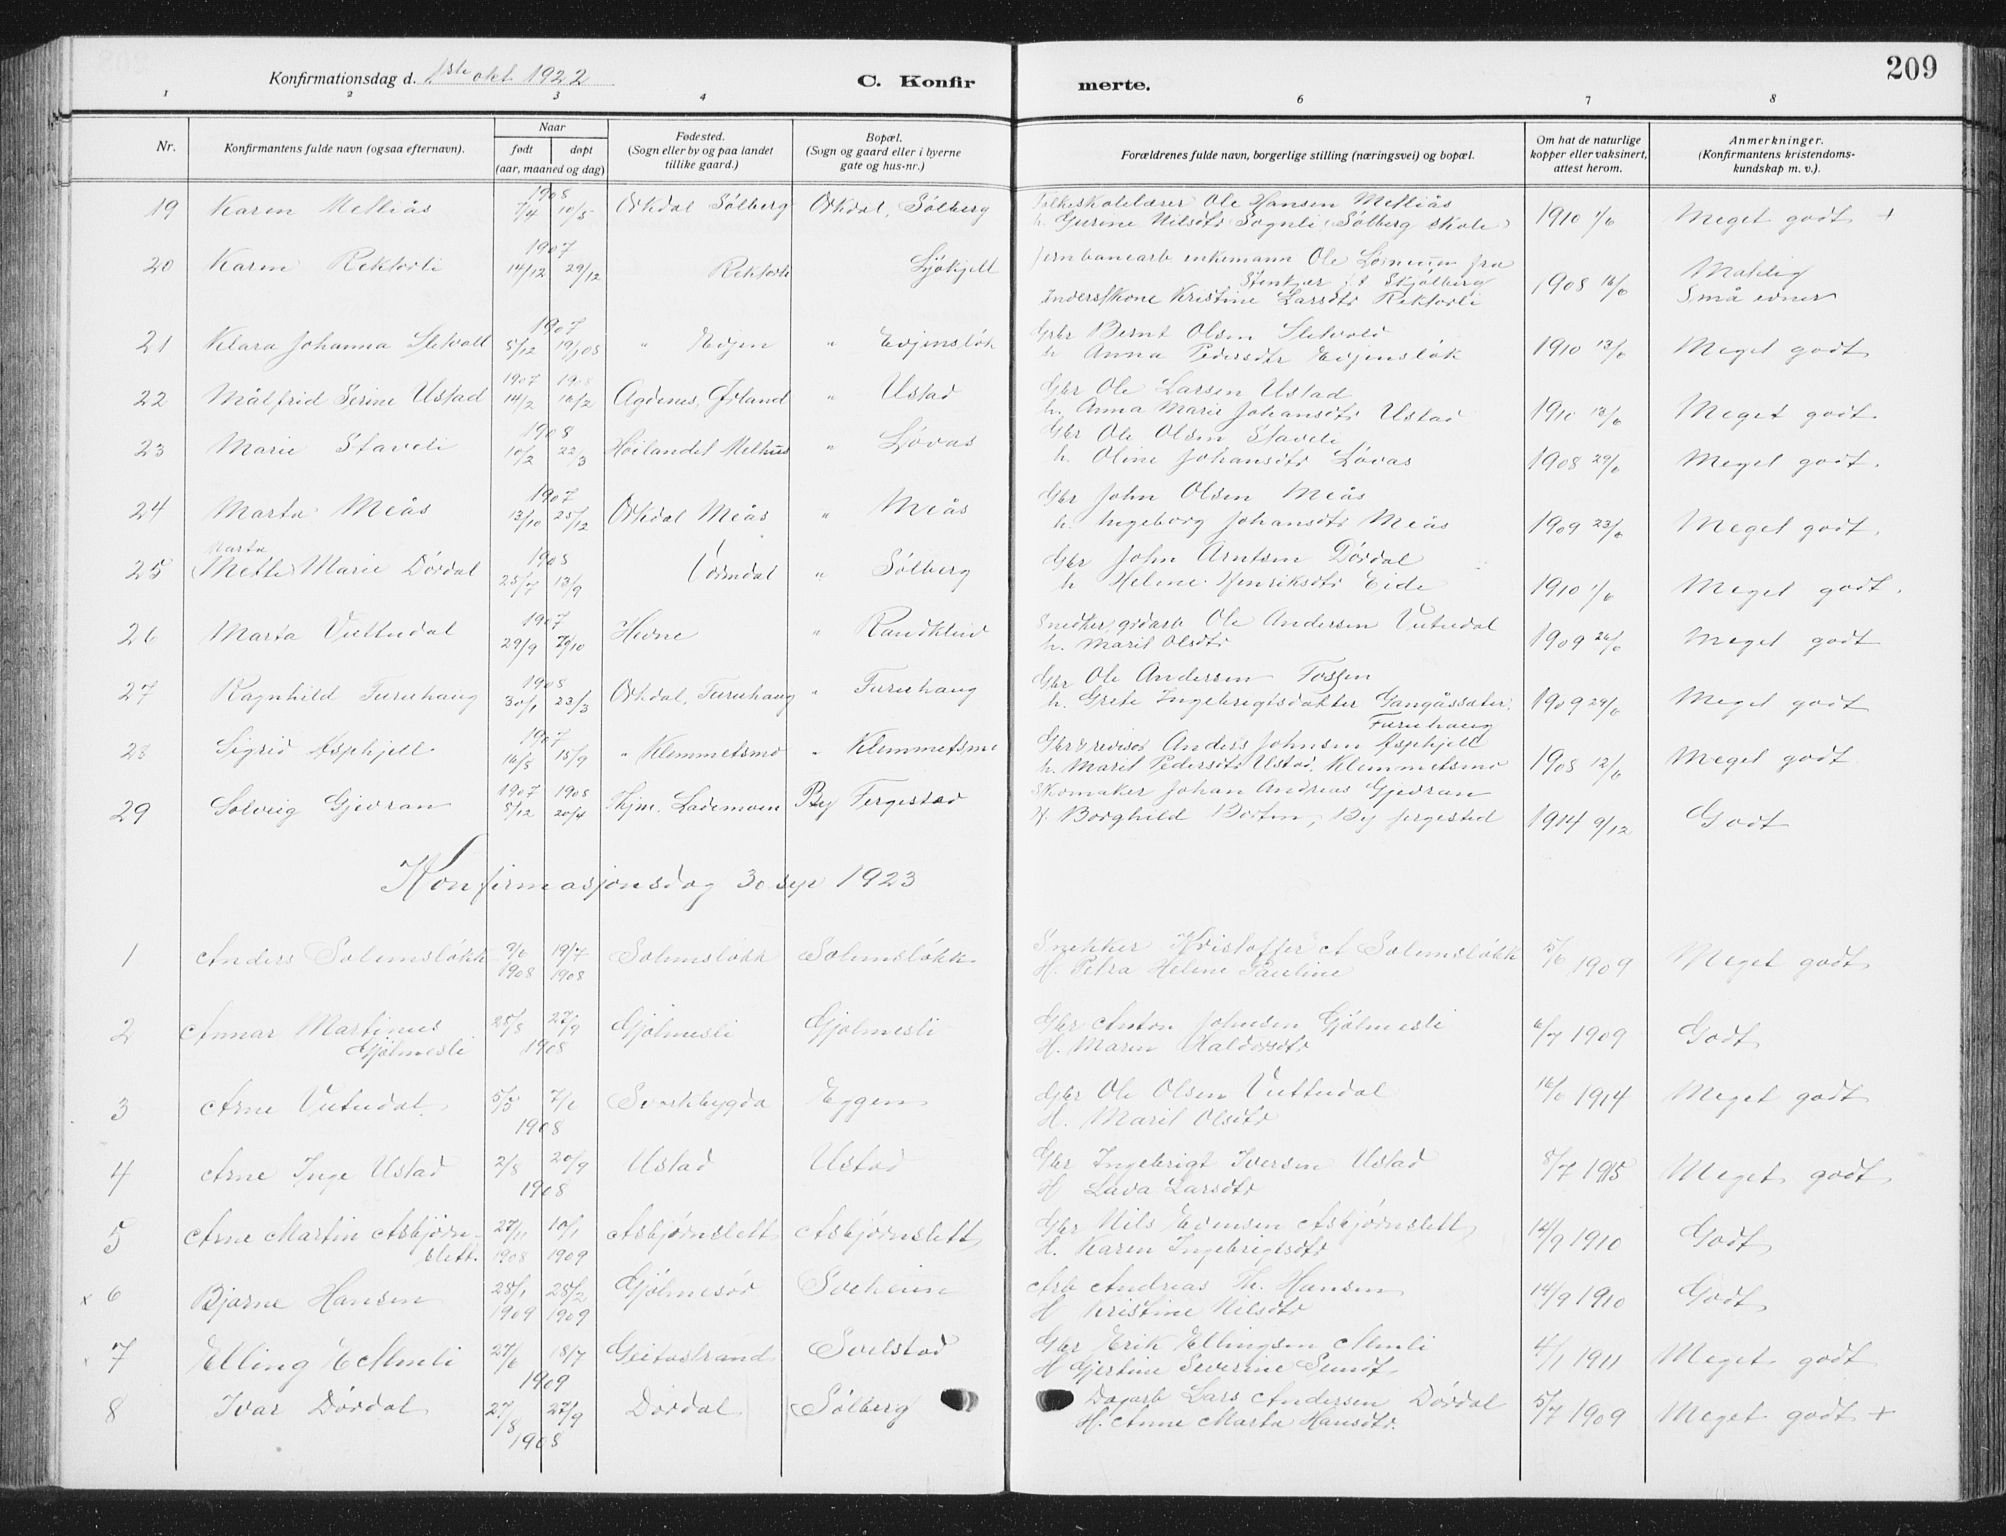 209
Konfirmationsdag d. 1ste okt 1922
C. Konfirmerte.
1 2 3 4 6 7 8
Nr.
Konfirmantens fulde navn (ogsaa efternavn).
Naar
født døpt
(aar, maaned og dag)
Fødested.
(Sogn eller by og paa landet
tillike gaard.)
Bopæl.
(Sogn og gaard eller i byerne
gate og hus-nr.)
Forældrenes fulde navn, borgerlige stilling (næringsvei) og bopæl.
Om hat de naturlige
kopper eller vaksinert,
attest herom.
Anmerkninger.
(Konfirmantens kristendoms-
kundskap m. v.).
19 Karen Melliås 1908 7/4 10/5 Orkdal Sølberg Orkdal, Sølberg
Folkeskolelærer Ole Hansen Melliås
h. Gurine Nilsdtr Sognli (Sølberg skole) 1910 1/6 Meget godt +
20 Karen Rektorli 1907 14/12 29/12 Rektorli
Jernbanearb enkemann Ole fra
Stenkjer
Kristine Larsdtr Rektorli 1908 16/6 Små evner
21 Klara Johanna Sletvold 1907 5/12 19/1 08 " Evjen " Evjensløk
Gbr Bernt Olsen Sletvold
h Anna Pedersdtr Evjensløk 1910 13/6 Meget godt
22 Målfrid Serine Ustad 1907 14/2 1908 16/2 Agdenes, Ørland " Ustad
Gbr Ole Larsen Ustad
h. Anna Marie Johansdtr Ustad 1910 13/6 Meget godt.
23 Marie Staveli 1908 10/2 22/3 Høilandet Melhus " Løvås
Gbr Ole Olsen Staveli
h. Oline Johansdtr Løvås 1908 29/6 Meget godt.
24 Marta Meås 1907 13/10 25/12 Orkdal Meås " Meås
Gbr John Olsen Meås
h. Ingeborg Johansdtr Meås 1909 23/6 Meget godt.
Marta
25 (Mette) Marie Dørdal 1908 25/7 13/9 " Sølberg
Gbr John Arntsen Dørdal
h Helene Henriksdtr Eide 1910 1/6 Meget godt.
26 Marta Vuttudal 1907 29/9 20/10 Hevne "
Snedker, Ole Andersen Vutudal
h. Marit Olsdtr 1909 26/6 Meget godt
27 Ragnhild Furuhaug 1908 30/1 23/3 Orkdal, Furuhaug " Furuhaug
Gbr Ole Andersen Fossen
h. Grete Ingebrigtsdatter Gangåssæter, 1909 29/6 Meget godt
Furuhaug
28 Sigrid Asphjell 1907 16/8 15/9 " Klemmetsmo " Klemmetsmo
Gbr & revisor Anders Johnsen Asphjell
h. Marit Pedersdtr Ustad, Klemmetsmo 1908 12/6 Meget godt
29 Solveig Gjevran 1907 5/12 1908 20/4 Thjm. Lademoen By Fergestad
Skomaker Johan Andreas Gjevran
H. Borghild Borten, By fergested 1914 9/12 Godt
Konfirmasjonsdag 30 sep 1923
1 Anders Solemsløkk 9/6 1908 19/7 1908 Solemsløkk Solemsløkk
Snekker Kristoffer A Solemsløkk
H. Petra Helene Pauline 5/6 1909 Meget godt
2 Annar Martinus
Gjølmesli 25/8 27/9 1908 Gjølmesli Gjølmesli
Gbr Anton Johnsen Gjølmesli
H. Maren Haldorsdtr 6/7 1909 Godt
3 Arne Vutudal 5/5 7/6 1908 Svorkbygda Eggen
Gbr Ole Olsen Vuttudal
H. Marit Olsdtr 16/6 1914 Meget godt
4 Arne Inge Ustad 2/8 20/9 1908 Ustad Ustad
Gbr Ingebrigt Iversen Ustad
H Lava Larsdtr 8/7 1915 Meget godt
5 Arne Martin Asbjørn-
slett. 27/11 1908 10/1 1909 Asbjørnslett Asbjørnslett
Gbr Nils Evensen Asbjørnslett
H. Karen Ingebrigtsdtr 14/9 1910 Godt
x 6 Bjarne Hansen 25/1 1909 28/2 1909 Gjølmesør Solheim
Arb Andreas Th. Hansen
H Kristine Nilsdtr 14/9 1910 Godt
x 7 Elling E Almli 27/6 18/7 1909 Geitastrand
Gbr Erik Ellingsen Almli
H Gjertine Severine Sundt 4/1 1911 Meget godt
8 Ivar Dørdal 27/8 27/9 1908 Dørdal Sølberg
Dagarb Lars Andersen Dørdal
H. Anne Marta Hansdtr. 5/7 1909 Meget godt +